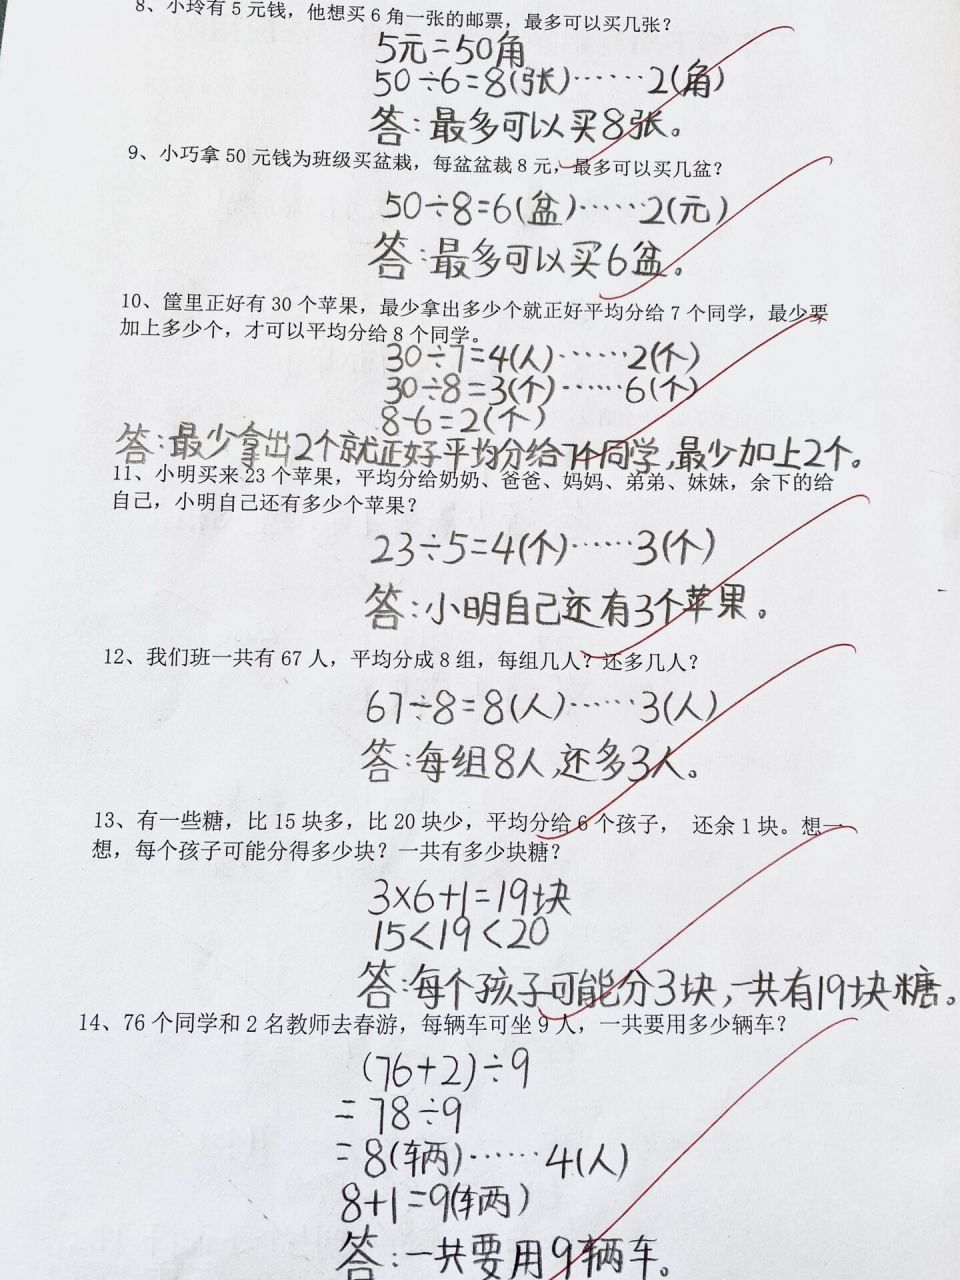 8、小玲有5元钱，他想买6角一张的邮票，最多可以买几张？
5元=50角
50÷6=8(张)……2(角)
答：最多可以买8张。
9、小巧拿50元钱为班级买盆栽，每盆盆栽8元，最多可以买几盆？
50÷8=6(盆)……2(元)
答：最多可以买6盆。
10、筐里正好有30个苹果，最少拿出多少个就正好平均分给7个同学，最少要
加上多少个，才可以平均分给8个同学。
30÷7=4(人)……2(个)
30÷8=3(个)……6(个)
8-6=2(个)
答：最少拿出2个就正好平均分给7个同学，最少加上2个。
11、小明买来23个苹果，平均分给奶奶、爸爸、妈妈、弟弟、妹妹，余下的给
自己，小明自己还有多少个苹果？
23÷5=4(个)……3(个)
答：小明自己还有3个苹果。
12、我们班一共有67人，平均分成8组，每组几人？还多几人？
67÷8=8(人)……3(人)
答：每组8人，还多3人。
13、有一些糖，比15块多，比20块少，平均分给6个孩子， 还余1块。想一
想，每个孩子可能分得多少块？一共有多少块糖？
3×6+1=19块
15<19<20
答：每个孩子可能分3块，一共有19块糖。
14、76个同学和2名教师去春游，每辆车可坐9人，一共要用多少辆车？
(76+2)÷9
=78÷9
=8(辆)……4(人)
8+1=9(辆)
答：一共要用9辆车。